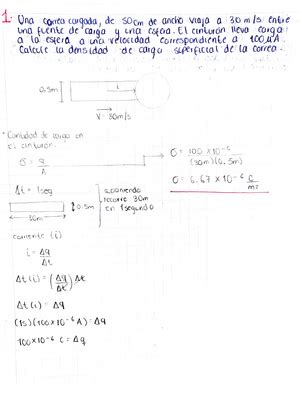 1. Una correa cargada, de 50cm de ancho viaja a 30 m/s entre
una fuente de carga y una esfera. El cinturón lleva carga
a la esfera a una velocidad correspondiente a 100μA.
Calcule la densidad de carga superficial de la correa.
0.5m
i
V = 30m/s
* Cantidad de carga en
el cinturón.
σ = q/A
σ = 100 x10⁻⁶ / (30m)(0.5m)
σ = 6.67 x10⁻⁶ c/m²
Δt = 1seg
0.5m
30m
suponiendo
recorre 30m
en 1 segundo
corriente (i)
i = Δq/Δt
Δt (i) = (Δq/Δt) Δt
Δt (i) = Δq
(1s)(100x10⁻⁶ A) = Δq
100x10⁻⁶ C = Δq